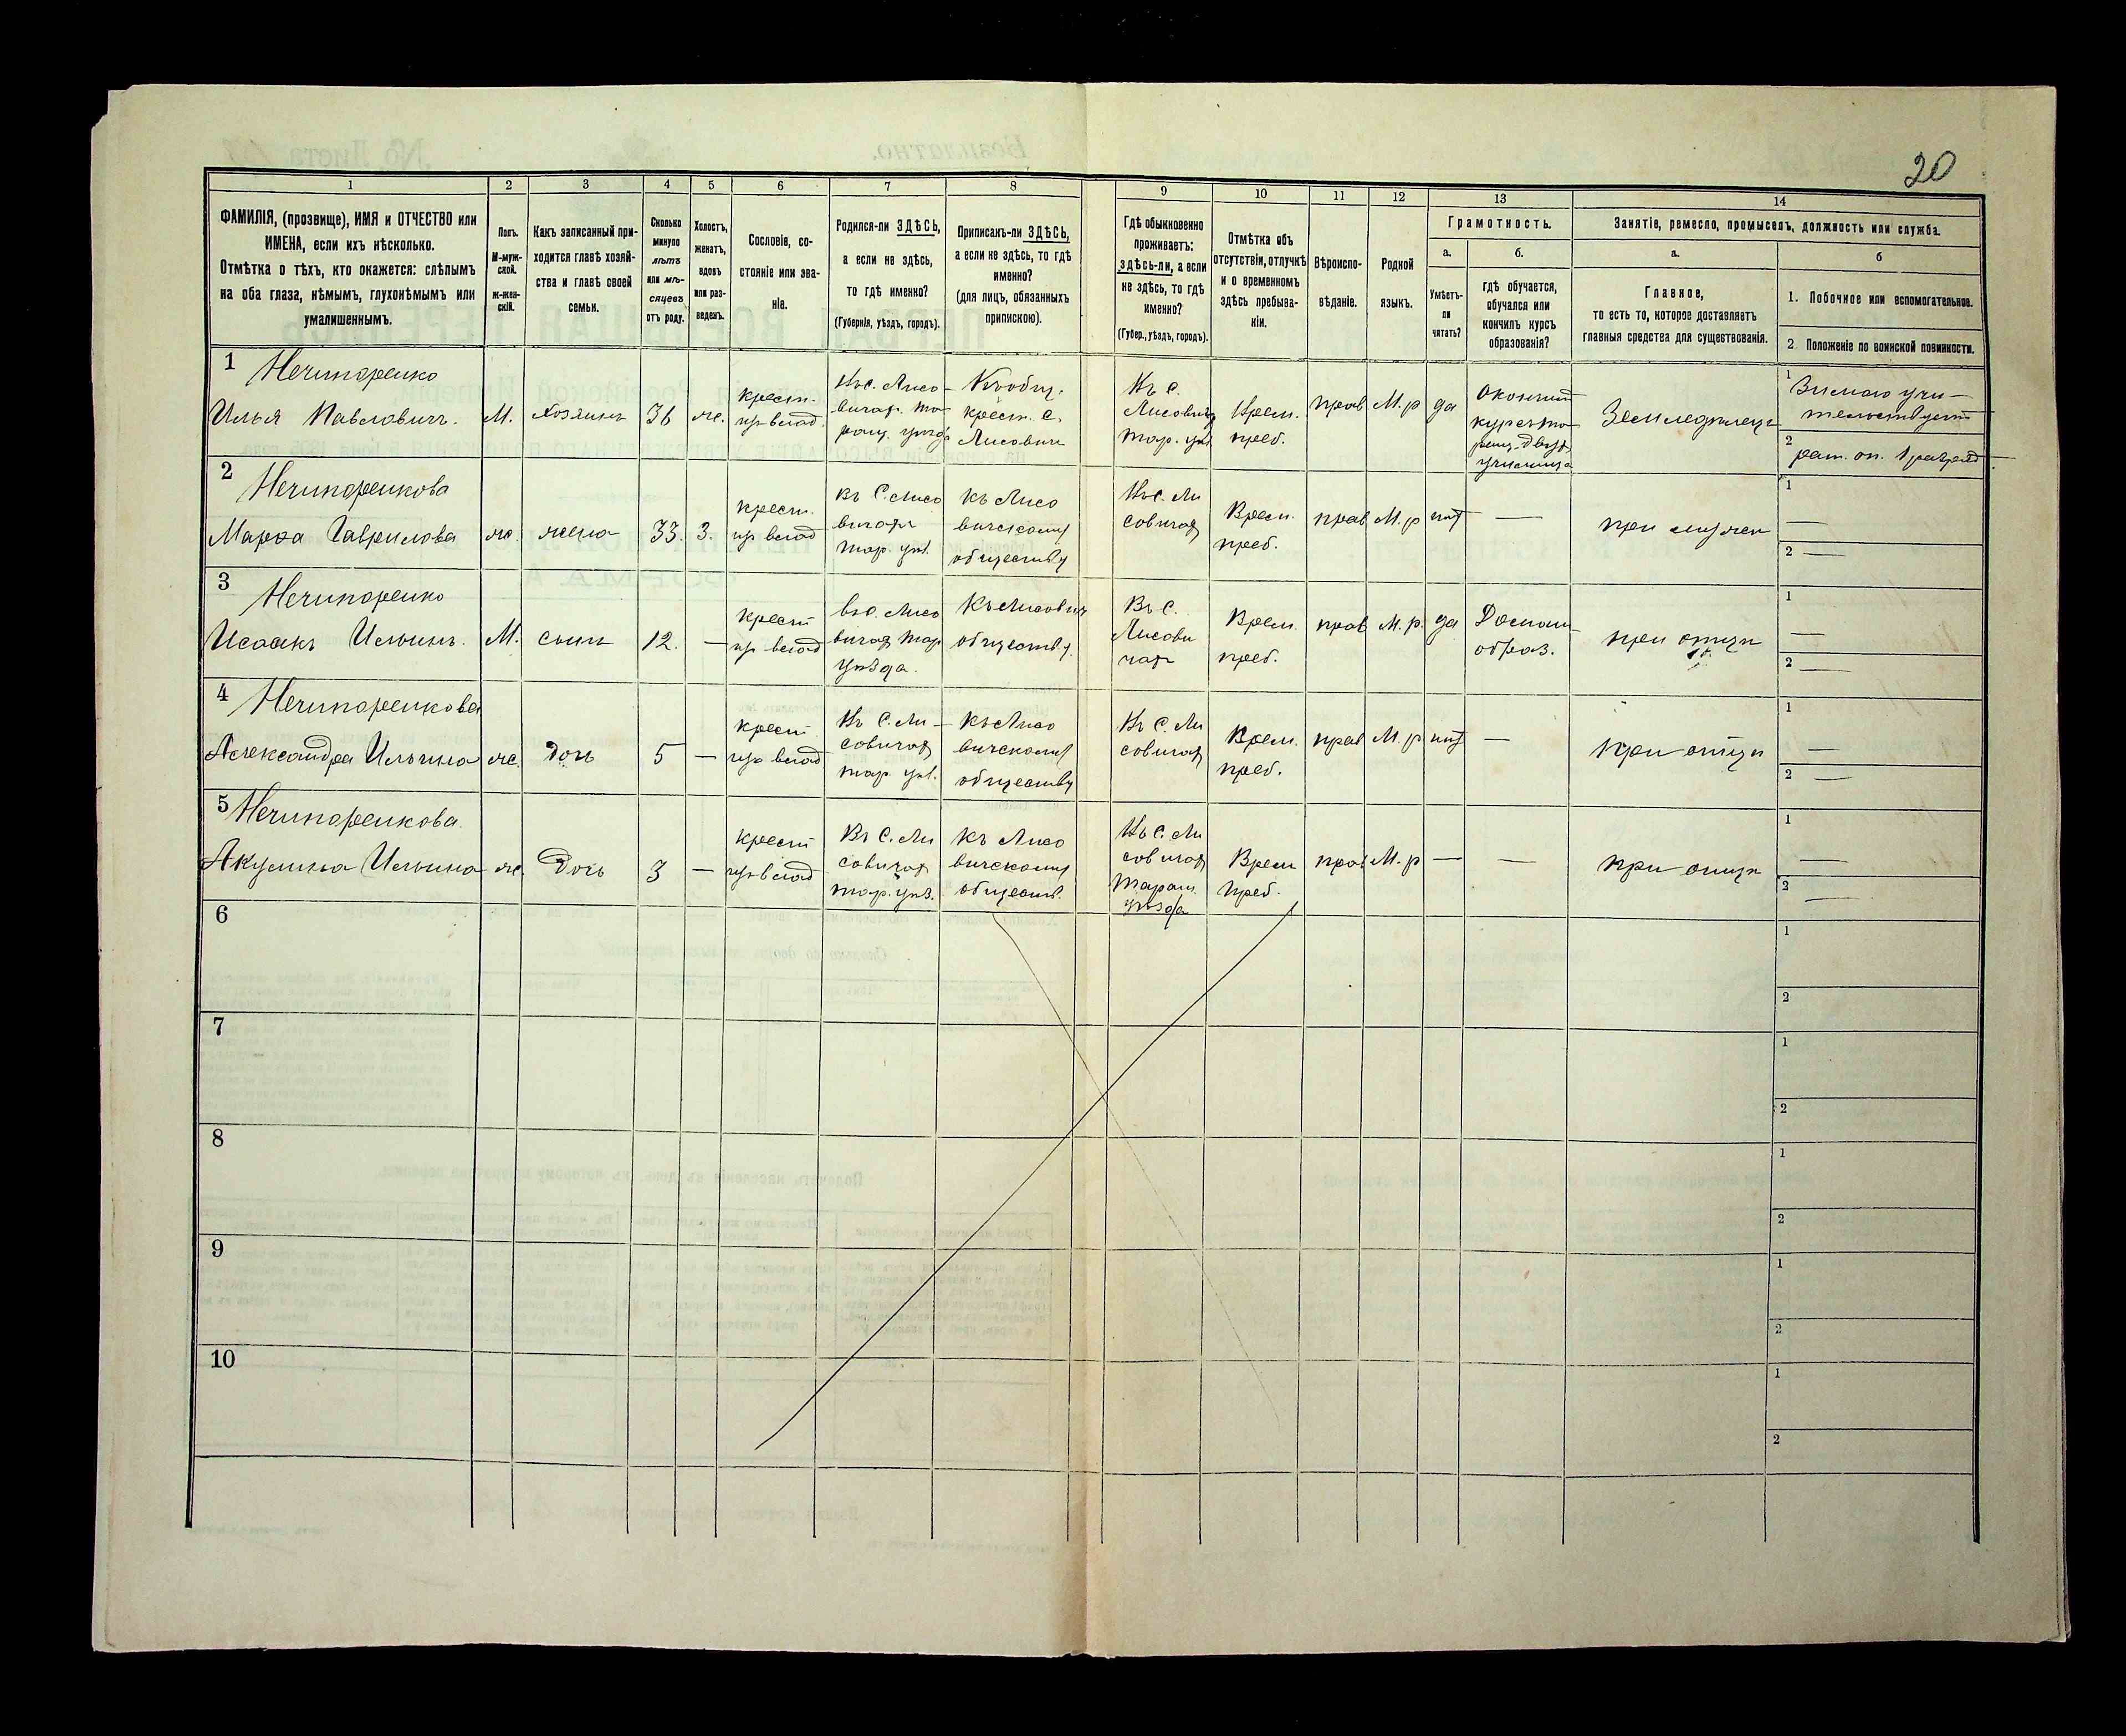 20
1 2 3 4 5 6 7 8 9 10 11 12 13 14
ФАМИЛІЯ, (прозвище), ИМЯ и ОТЧЕСТВО или
ИМЕНА, если ихъ нѣсколько.
Отмѣтка о тѣхъ, кто окажется: слѣпымъ
на оба глаза, нѣмымъ, глухонѣмымъ или
умалишеннымъ.
Полъ.
М-муж-
ской.
ж-жен-
скій.
Какъ записанный при-
ходится главѣ хозяй-
ства и главѣ своей
семьи.
Сколько
минуло
лѣтъ
или мѣ-
сяцевъ
отъ роду.
Холостъ,
женатъ,
вдовъ
или раз-
веденъ.
Сословіе, со-
стояніе или зва-
ніе.
Родился-ли ЗДѢСЬ,
а если не здѣсь,
то гдѣ именно?
(Губернія, уѣздъ, городъ).
Приписанъ-ли ЗДѢСЬ,
а если не здѣсь, то гдѣ
именно?
(для лицъ, обязанныхъ
припискою).
Гдѣ обыкновенно
проживаетъ:
здѣсь-ли, а если
не здѣсь, то гдѣ
именно?
(Губер., уѣздъ, городъ).
Отмѣтка объ
отсутствіи, отлучкѣ
и о временномъ
здѣсь пребыва-
ніи.
Вѣроиспо-
вѣданіе.
Родной
языкъ.
Грамотность.
а.
Умѣетъ-
ли
читать?
б.
гдѣ обучается,
обучался или
кончилъ курсъ
образованія?
Занятіе, ремесло, промыселъ, должность или служба.
а.
Главное,
то есть то, которое доставляетъ
главныя средства для существованія.
б
1. Побочное или вспомогательное.
2 Положеніе по воинской повинности.
1 Нечипоренко
Илья Павловичъ. М. хозяинъ 36 ж.
крест.
из влад.
Въ с. Лисо-
вичах. Та-
ращ. уѣзда
Къ общ.
крест. с.
Лисовичи
Въ с.
Лисовичах
Тар. уѣз.
Врем.
преб.
прав М. р да
Окончил
курс та-
ращ. двух
училища
Земледѣлецъ
1 Зимою учи-
тельствует
2 рат. оп. 1 разряд.
2 Нечипоренкова
Марфа Гаврилова ж. жена 33. З.
крест.
из влад
Въ С. Лисо
вичах
Тар. уѣз.
Къ Лисо
вичскому
обществу
Въ С. Ли
совичах
Врем.
преб.
прав М. р нѣт —
при мужѣ
1 —
2 —
3 Нечипоренко
Исаакъ Ильинъ. М. сынъ 12. —
крест
из влад
въ С. Лисо
вичах Тар
уѣзда.
Къ Лисович
обществу.
Въ С.
Лисови
чах
Врем
преб.
прав М. р. да
Домаш
образ.
при отцѣ
1 —
2 —
4 Нечипоренкова
Александра Ильина ж. Дочь 5 —
крест
из влад
Въ С. Ли-
совичах
Тар. уѣз.
Къ Лисо
вичскому
обществу
Въ С. Ли
совичах
Врем.
преб.
прав М. р нѣт —
при отцѣ
1 —
2 —
5 Нечипоренкова
Акулина Ильина ж. Дочь 3 —
крест
из влад
Въ С. Ли
совичах
Тар. уѣз.
Къ Лисо
вичскому
обществ.
Въ С. Ли
совичах
Таращ.
уѣзда
Врем
преб.
прав М. р — —
при отцѣ
1 —
2 —
6
1
2
7
1
2
8
1
2
9
1
2
10
1
2